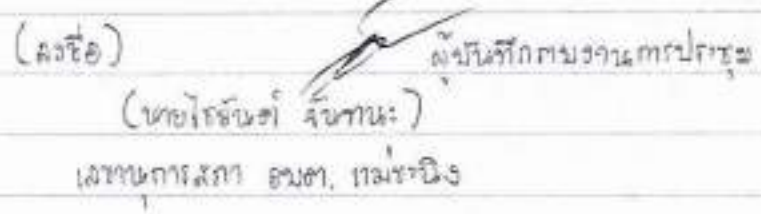 (ลงชื่อ) ผู้บันทึกรายงานการประชุม
(นายไรอันต์ จันทนะ)
เลขานุการสภา อบต. แม่ระนิง